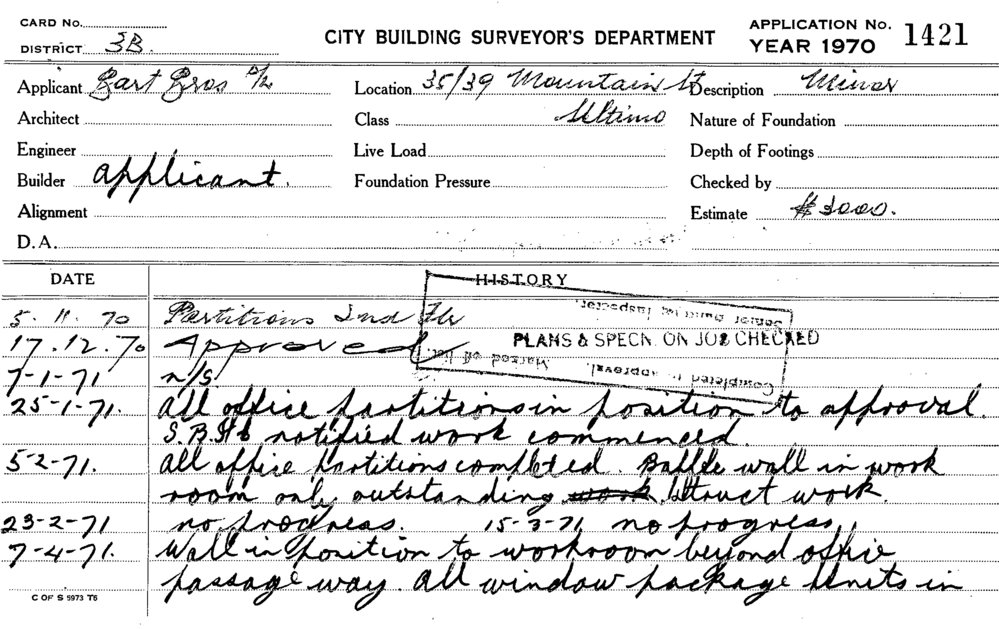 CARD No.
DISTRICT 3B.
CITY BUILDING SURVEYOR'S DEPARTMENT
APPLICATION No. 1421
YEAR 1970
Applicant
Location 35/39 Mountain St
Description Minor
Architect
Class Ultimo
Nature of Foundation
Engineer
Live Load
Depth of Footings
Builder applicant.
Foundation Pressure
Checked by
Alignment
Estimate $3000.
D.A.
DATE
HISTORY
5.11.70 Partitions 2nd Flr
17.12.70 Approved
7-1-71 n/s
25-1-71. All office partitions in position to approval.
notified work commenced.
5-2-71. All office partitions completed. Baffle wall in work
room only outstanding work. Struct work.
23-2-71 no progress. 15-3-71 no progress
7-4-71. Wall in position to workroom beyond office
passage way. All window package units in
PLANS & SPECN. ON JOB CHECKED
Completed to approval.
Marked off list.
Senior Building Inspector.
C OF S 5973 T6